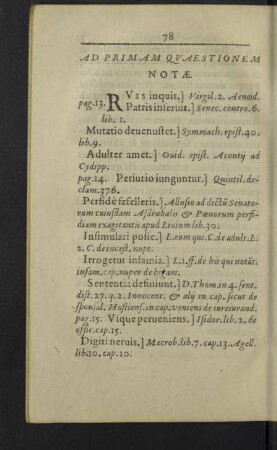 78
AD PRIMAM QVAESTIONEM
NOTÆ.
pag.13. RVIS inquit.] Virgil. 2. Aeneid.
Patris inseruit.] Senec. contro. 6.
lib. 1.
Mutatio devenustet.] Symmach. epist. 40.
lib. 9.
Adulter amet.] Ouid. epist. Acontij ad
Cydipp.
pag.14. Periurio iunguntur.] Quintil. de-
clam. 376.
Perfidè fefelleris.] Allusio ad dictũ Senato-
rum cuiusdam Asdrubalis & Pœnorum perfi-
diam exagitantis apud Liuium lib. 30.
Insimulari posse.] L. eum qui. C. de adult. L.
2. C. de incest. nupt.
Irrogetur infamia.] L. 1. ff. de his qui notãt.
infam. cap. nuper de bigam.
Sententia definiunt.] D. Thom. in 4. sent.
dist. 27. q. 2. Innocent. & alij in cap. sicut de
sponsal. Hostiens. in cap. veniens de iureiurand.
pag.15. Vique perueniens.] Isidor. lib. 2. de
offic. cap. 15.
Digiti neruis.] Macrob. lib. 7. cap. 13. Agell.
lib. 10. cap. 10.